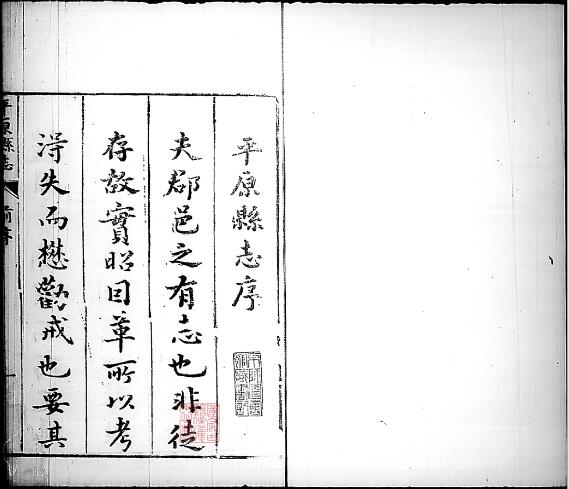 平原縣志序
夫郡邑之有志也非徒
存故實昭囙革所以考
淂失而懋勸戒也要其
平原縣志 前序